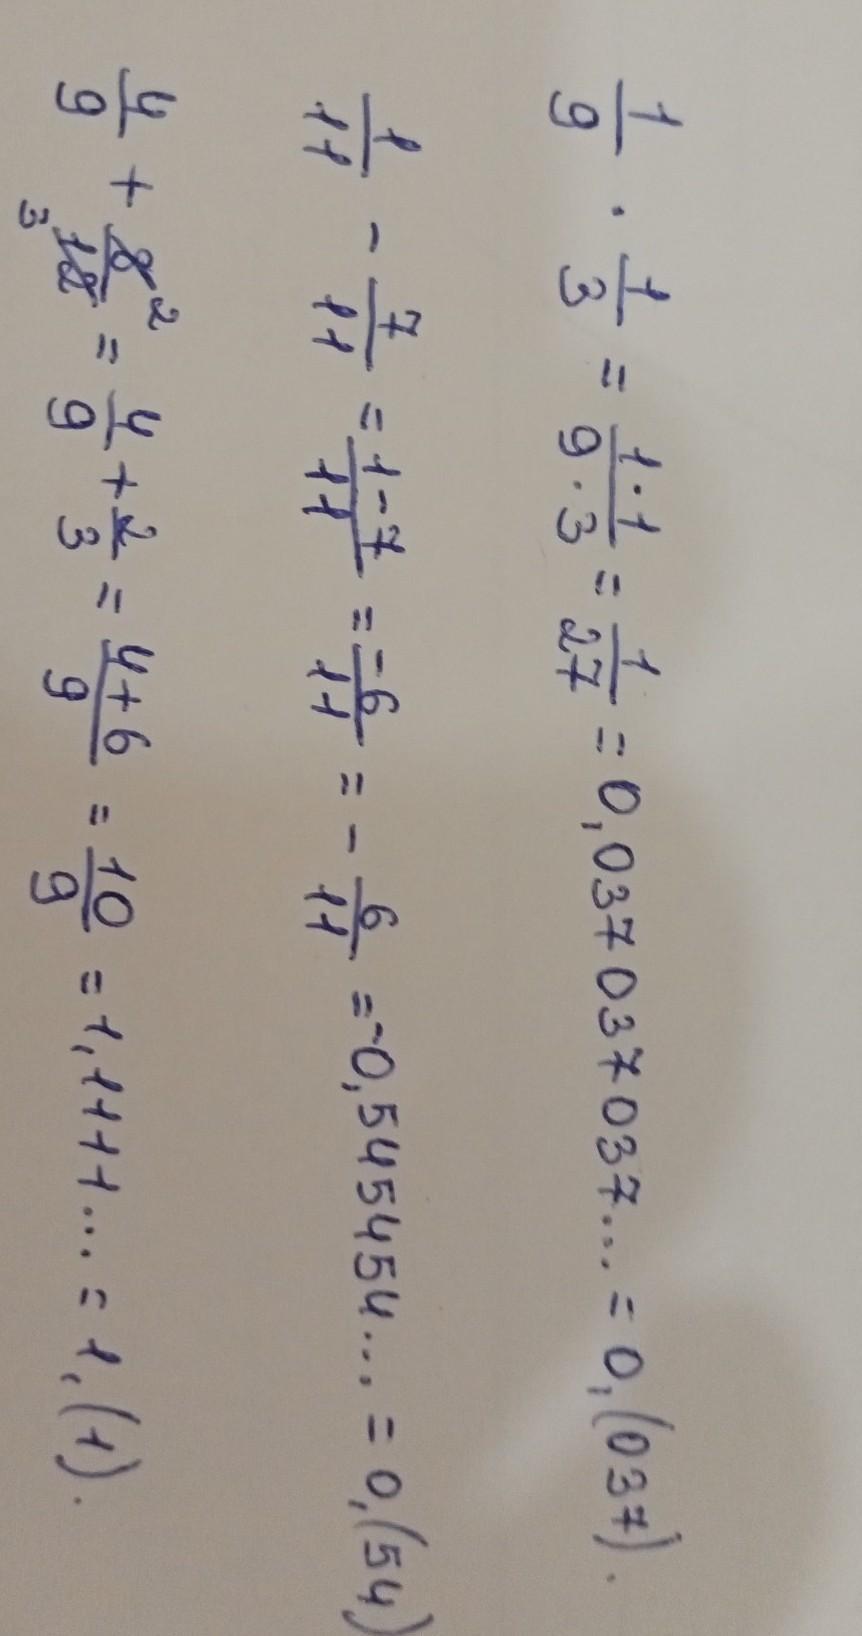 1/9 · 1/3 = 1·1/9·3 = 1/27 = 0,037037037... = 0,(037).
1/11 - 7/11 = 1-7/11 = -6/11 = - 6/11 = -0,545454... = 0,(54)
4/9 + 8/12 = 4/9 + 2/3 = 4+6/9 = 10/9 = 1,1111... = 1,(1).